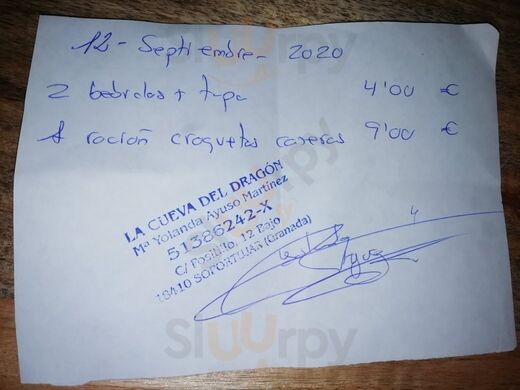 12 - Septiembre - 2020
2 bebidas + tapa 4'00 €
1 ración croquetas caseras 9'00 €
LA CUEVA DEL DRAGÓN
Mª Yolanda Ayuso Martínez
51386242-X
C/ Posillo, 12 Bajo
18410 SOPORTUJAR (Granada)
Sluurpy
Sluurpy